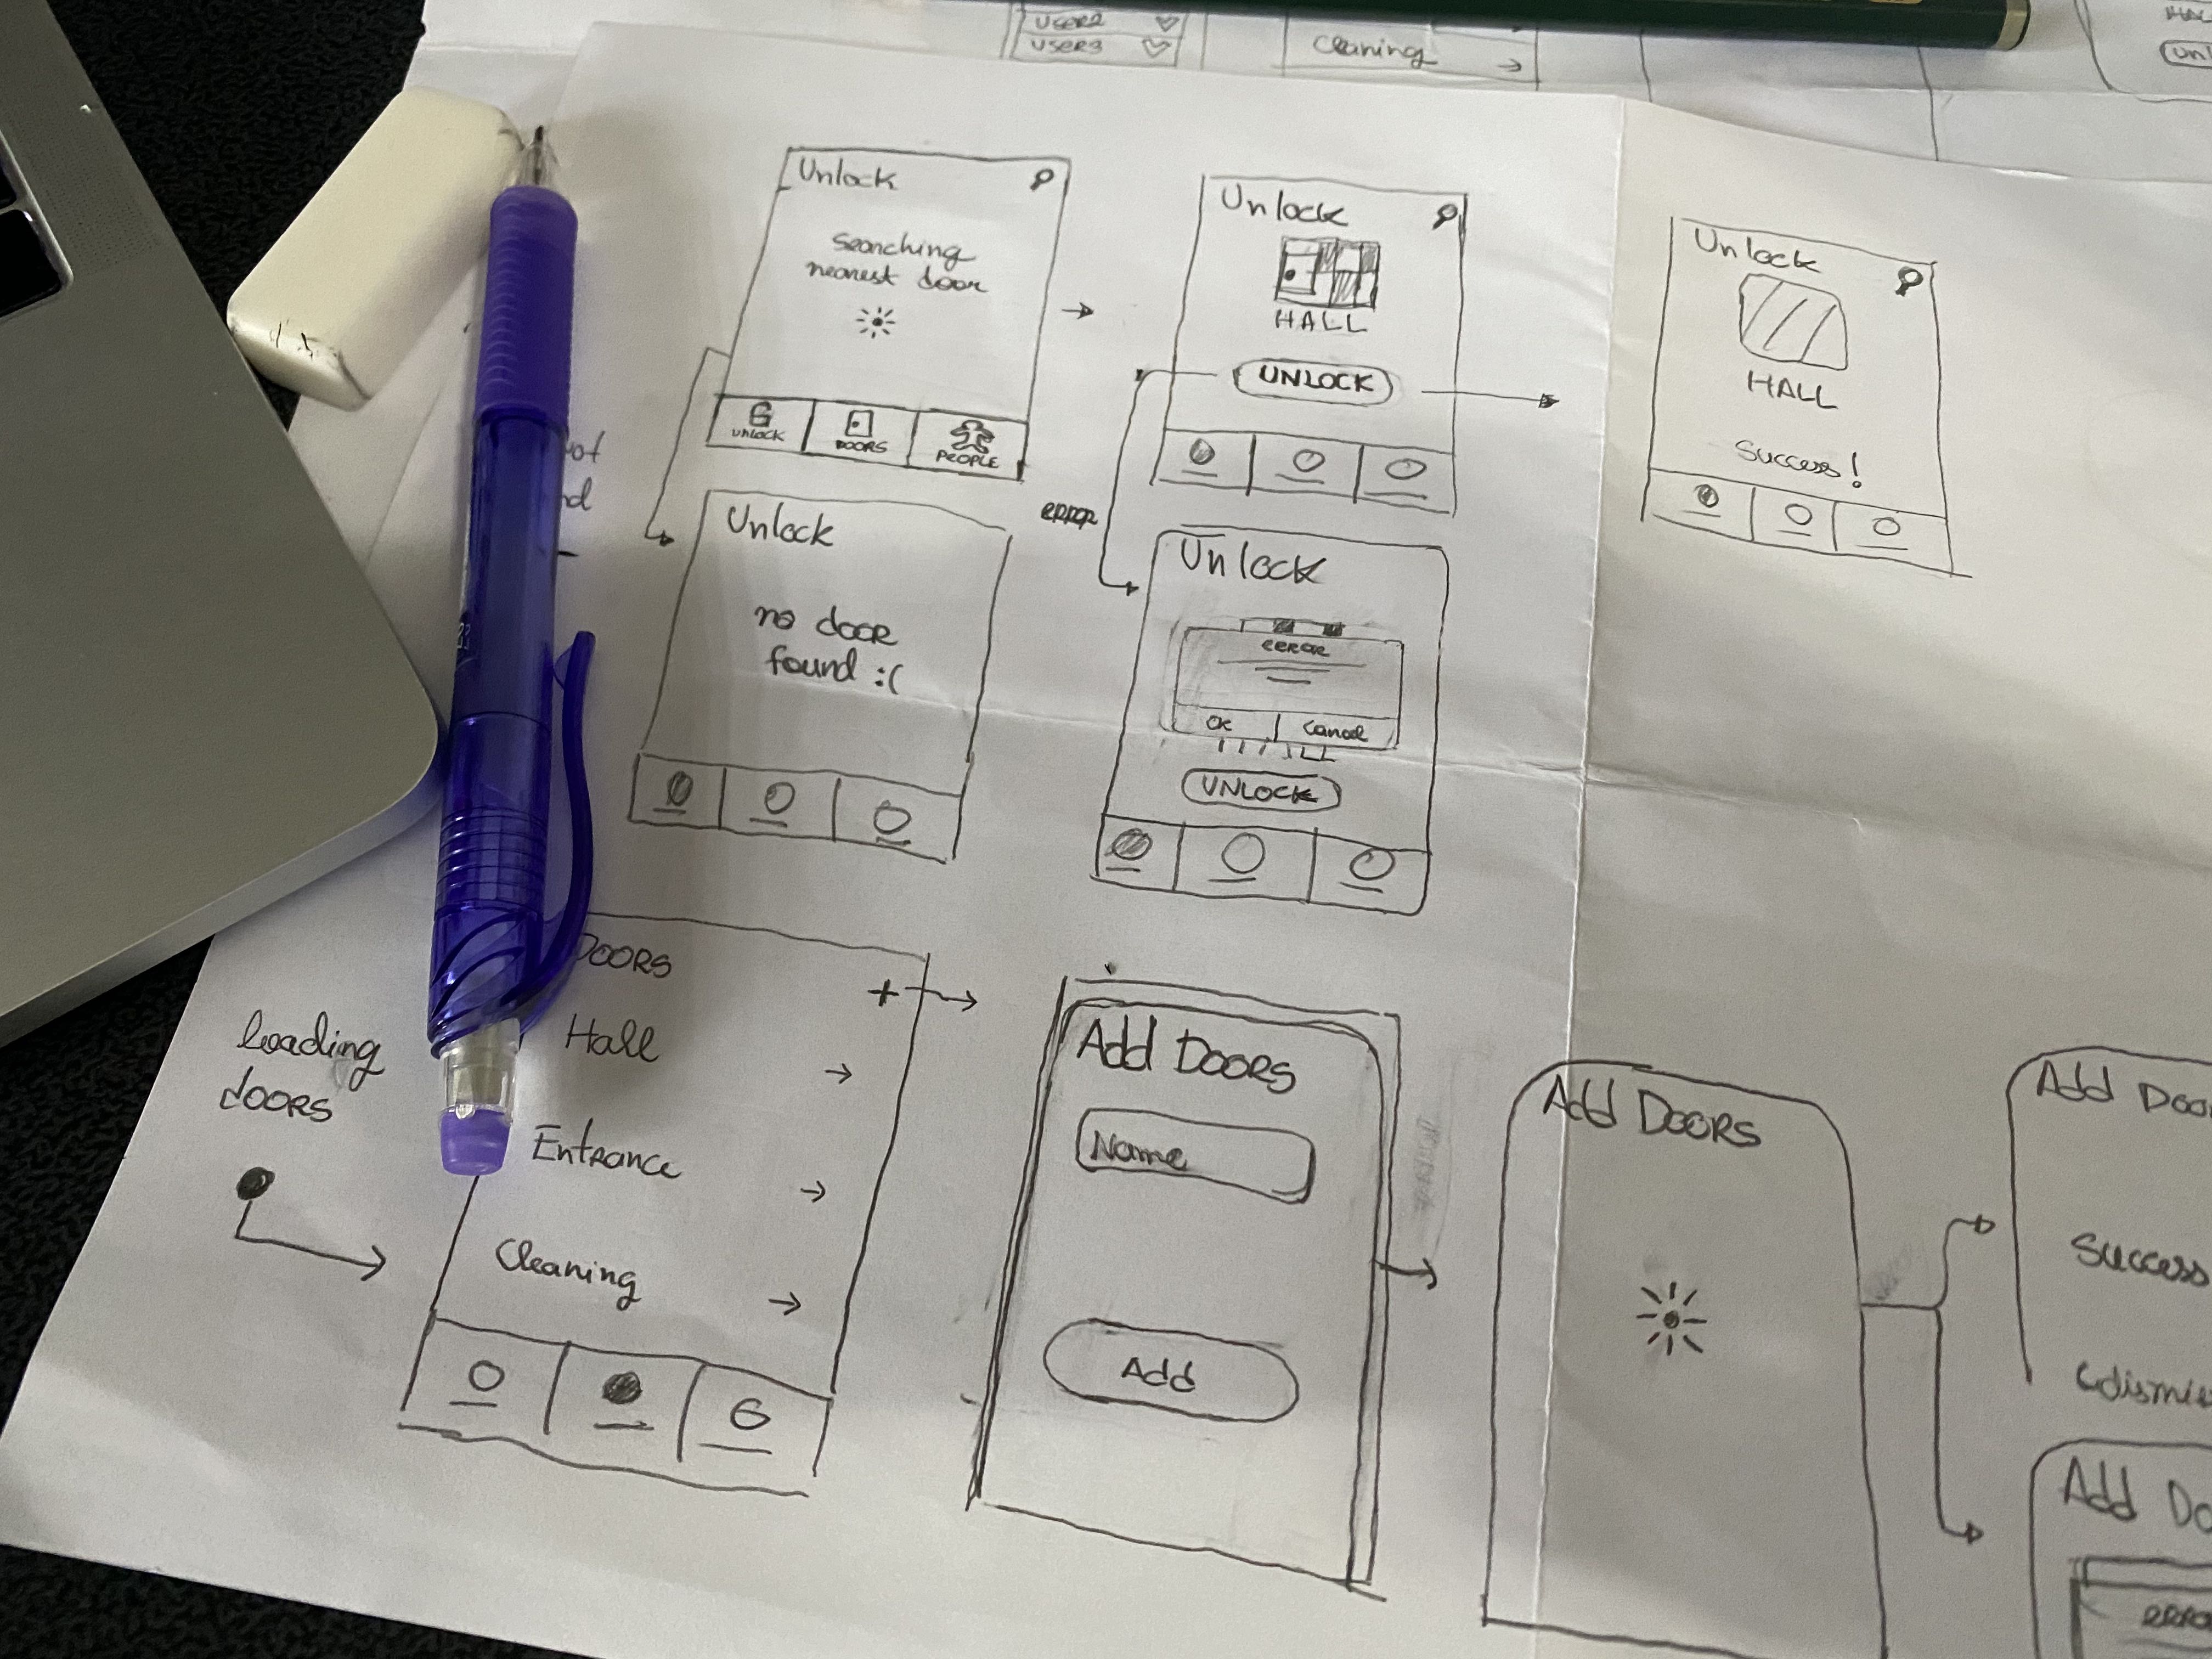 USER2
USER3
Cleaning
Unlock
Searching
nearest door
UNLOCK
DOORS
PEOPLE
Unlock
HALL
UNLOCK
Unlock
HALL
Success!
error
Unlock
no door
found :(
Unlock
error
OK
Cancel
UNLOCK
loading
doors
DOORS
+
Hall
Entrance
Cleaning
Add DOORS
Name
Add
Add DOORS
Add Doo
Success
Add Do
erro